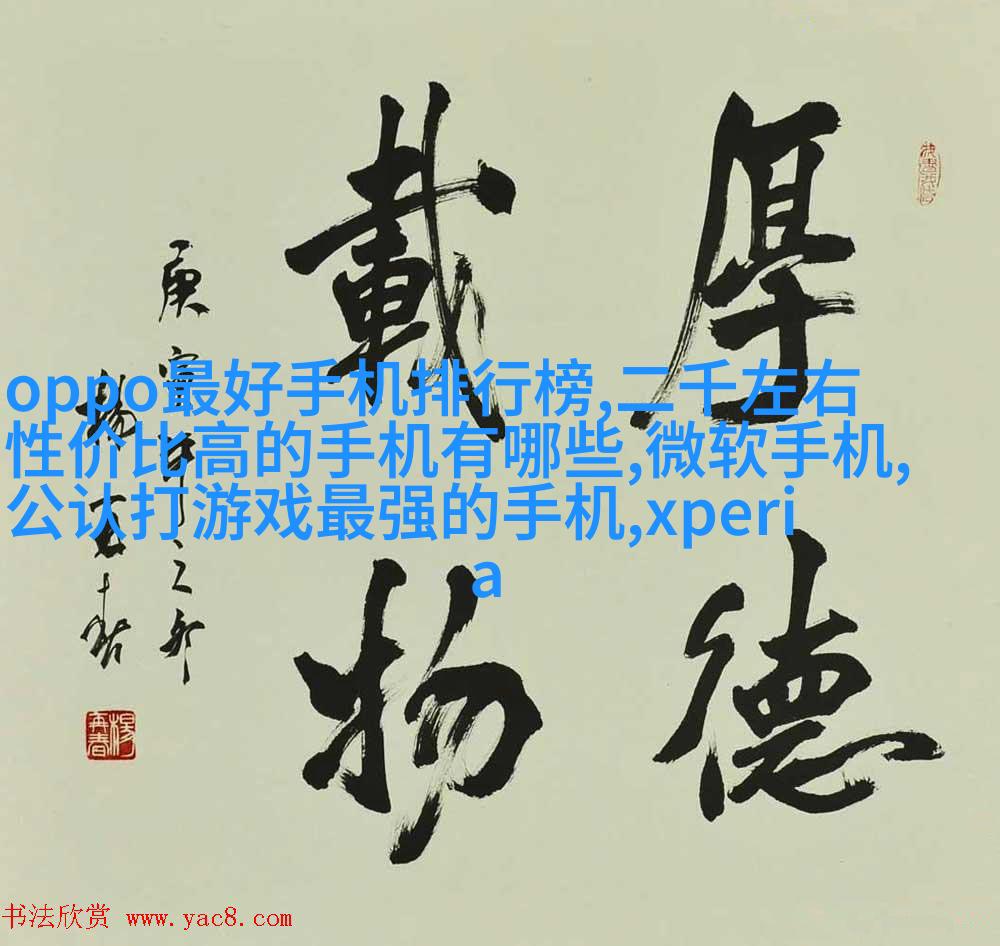 厚德
載物
楊再春
oppo最好手机排行榜,二千左右
性价比高的手机有哪些,微软手机,
公认打游戏最强的手机,xperi
a
书法欣赏 www.yac8.com